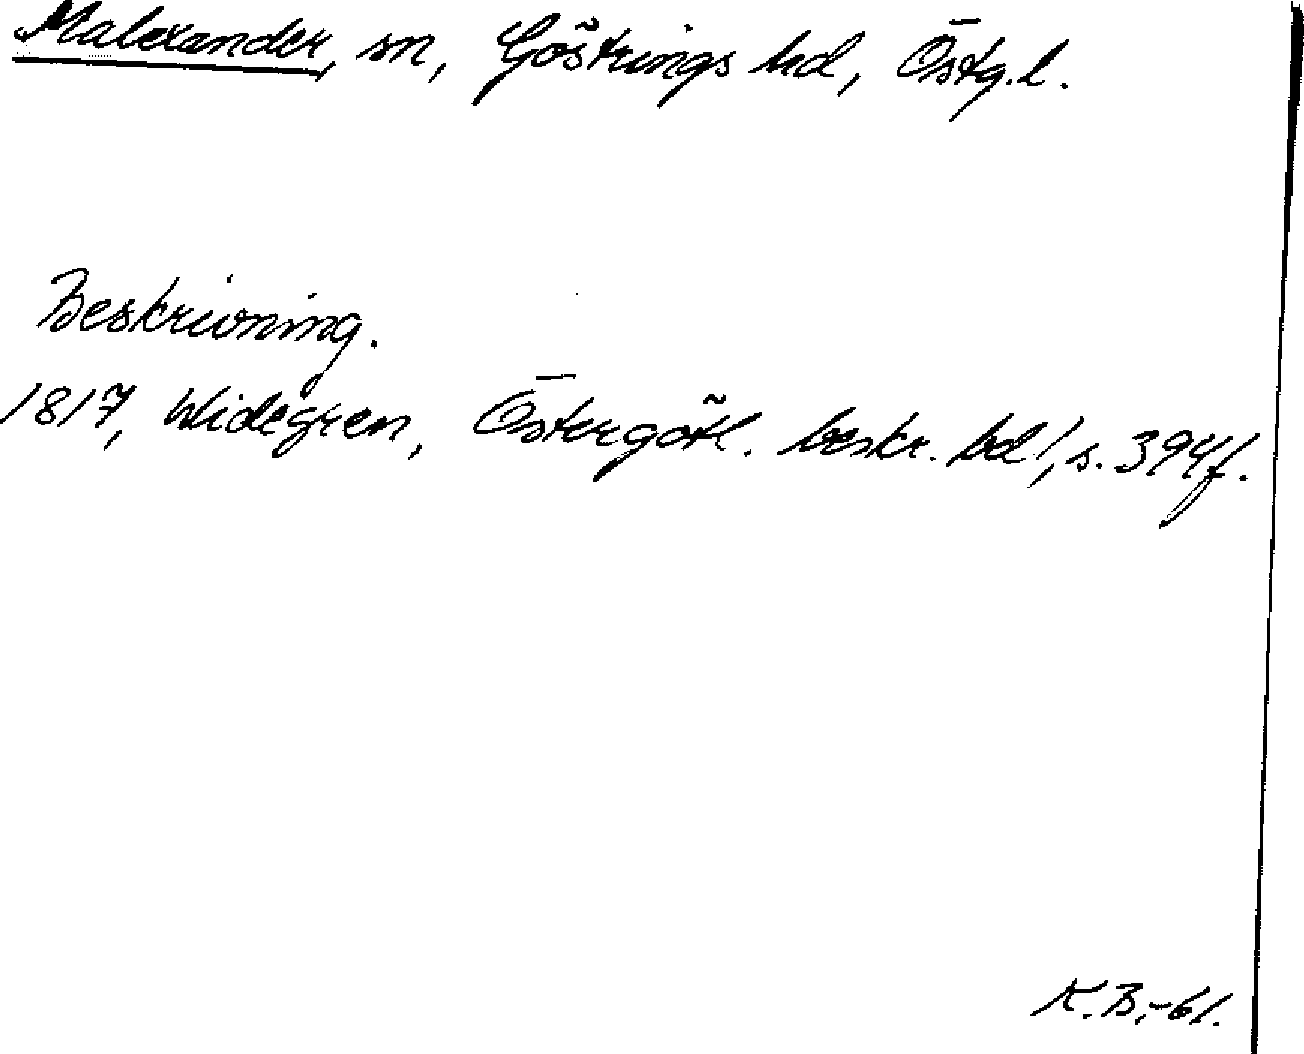 Malexander, sn, Göstrings hd, Östg.l.
Beskrivning.
1817, Widegren, Östergötl. beskr. bd 1, s. 394 f.
K.B.-61.